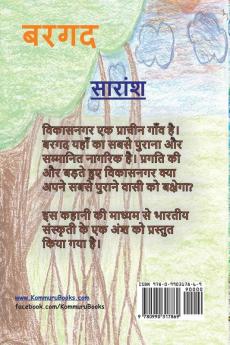 बरगद
सारांश
विकासनगर एक प्राचीन गाँव है।
बरगद यहाँ का सबसे पुराना और
सम्मानित नागरिक है। प्रगति की
और बढ़ते हुए विकासनगर क्या
अपने सबसे पुराने वासी को बक्षेगा?
इस कहानी की माध्यम से भारतीय
संस्कृती के एक अंश को प्रस्तुत
किया गया है।
www.KommuruBooks.com
facebook.com/KommuruBooks
ISBN 978-0-9903178-6-9
90000
9 780990 317869